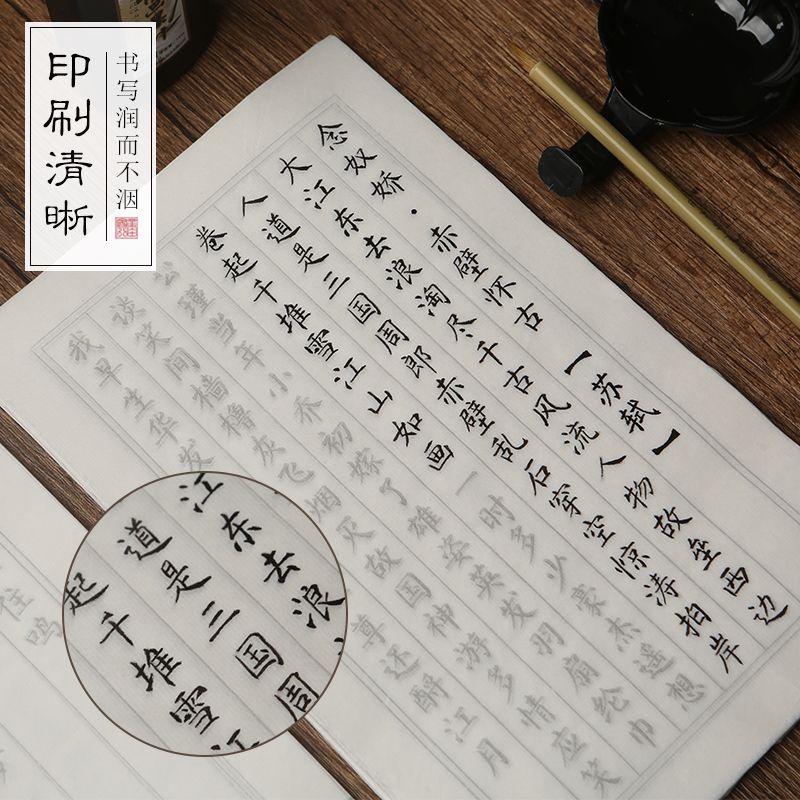 印刷清晰
书写润而不洇
念奴娇·赤壁怀古【苏轼】
大江东去浪淘尽千古风流人物故垒西边
人道是三国周郎赤壁乱石穿空惊涛拍岸
卷起千堆雪江山如画一时多少豪杰遥想
公瑾当年小乔初嫁了雄姿英发羽扇纶巾
谈笑间樯橹灰飞烟灭故国神游多情应笑
我早生华发
尊还酹江月
江东去浪
道是三国周
起千堆雪江
鸣